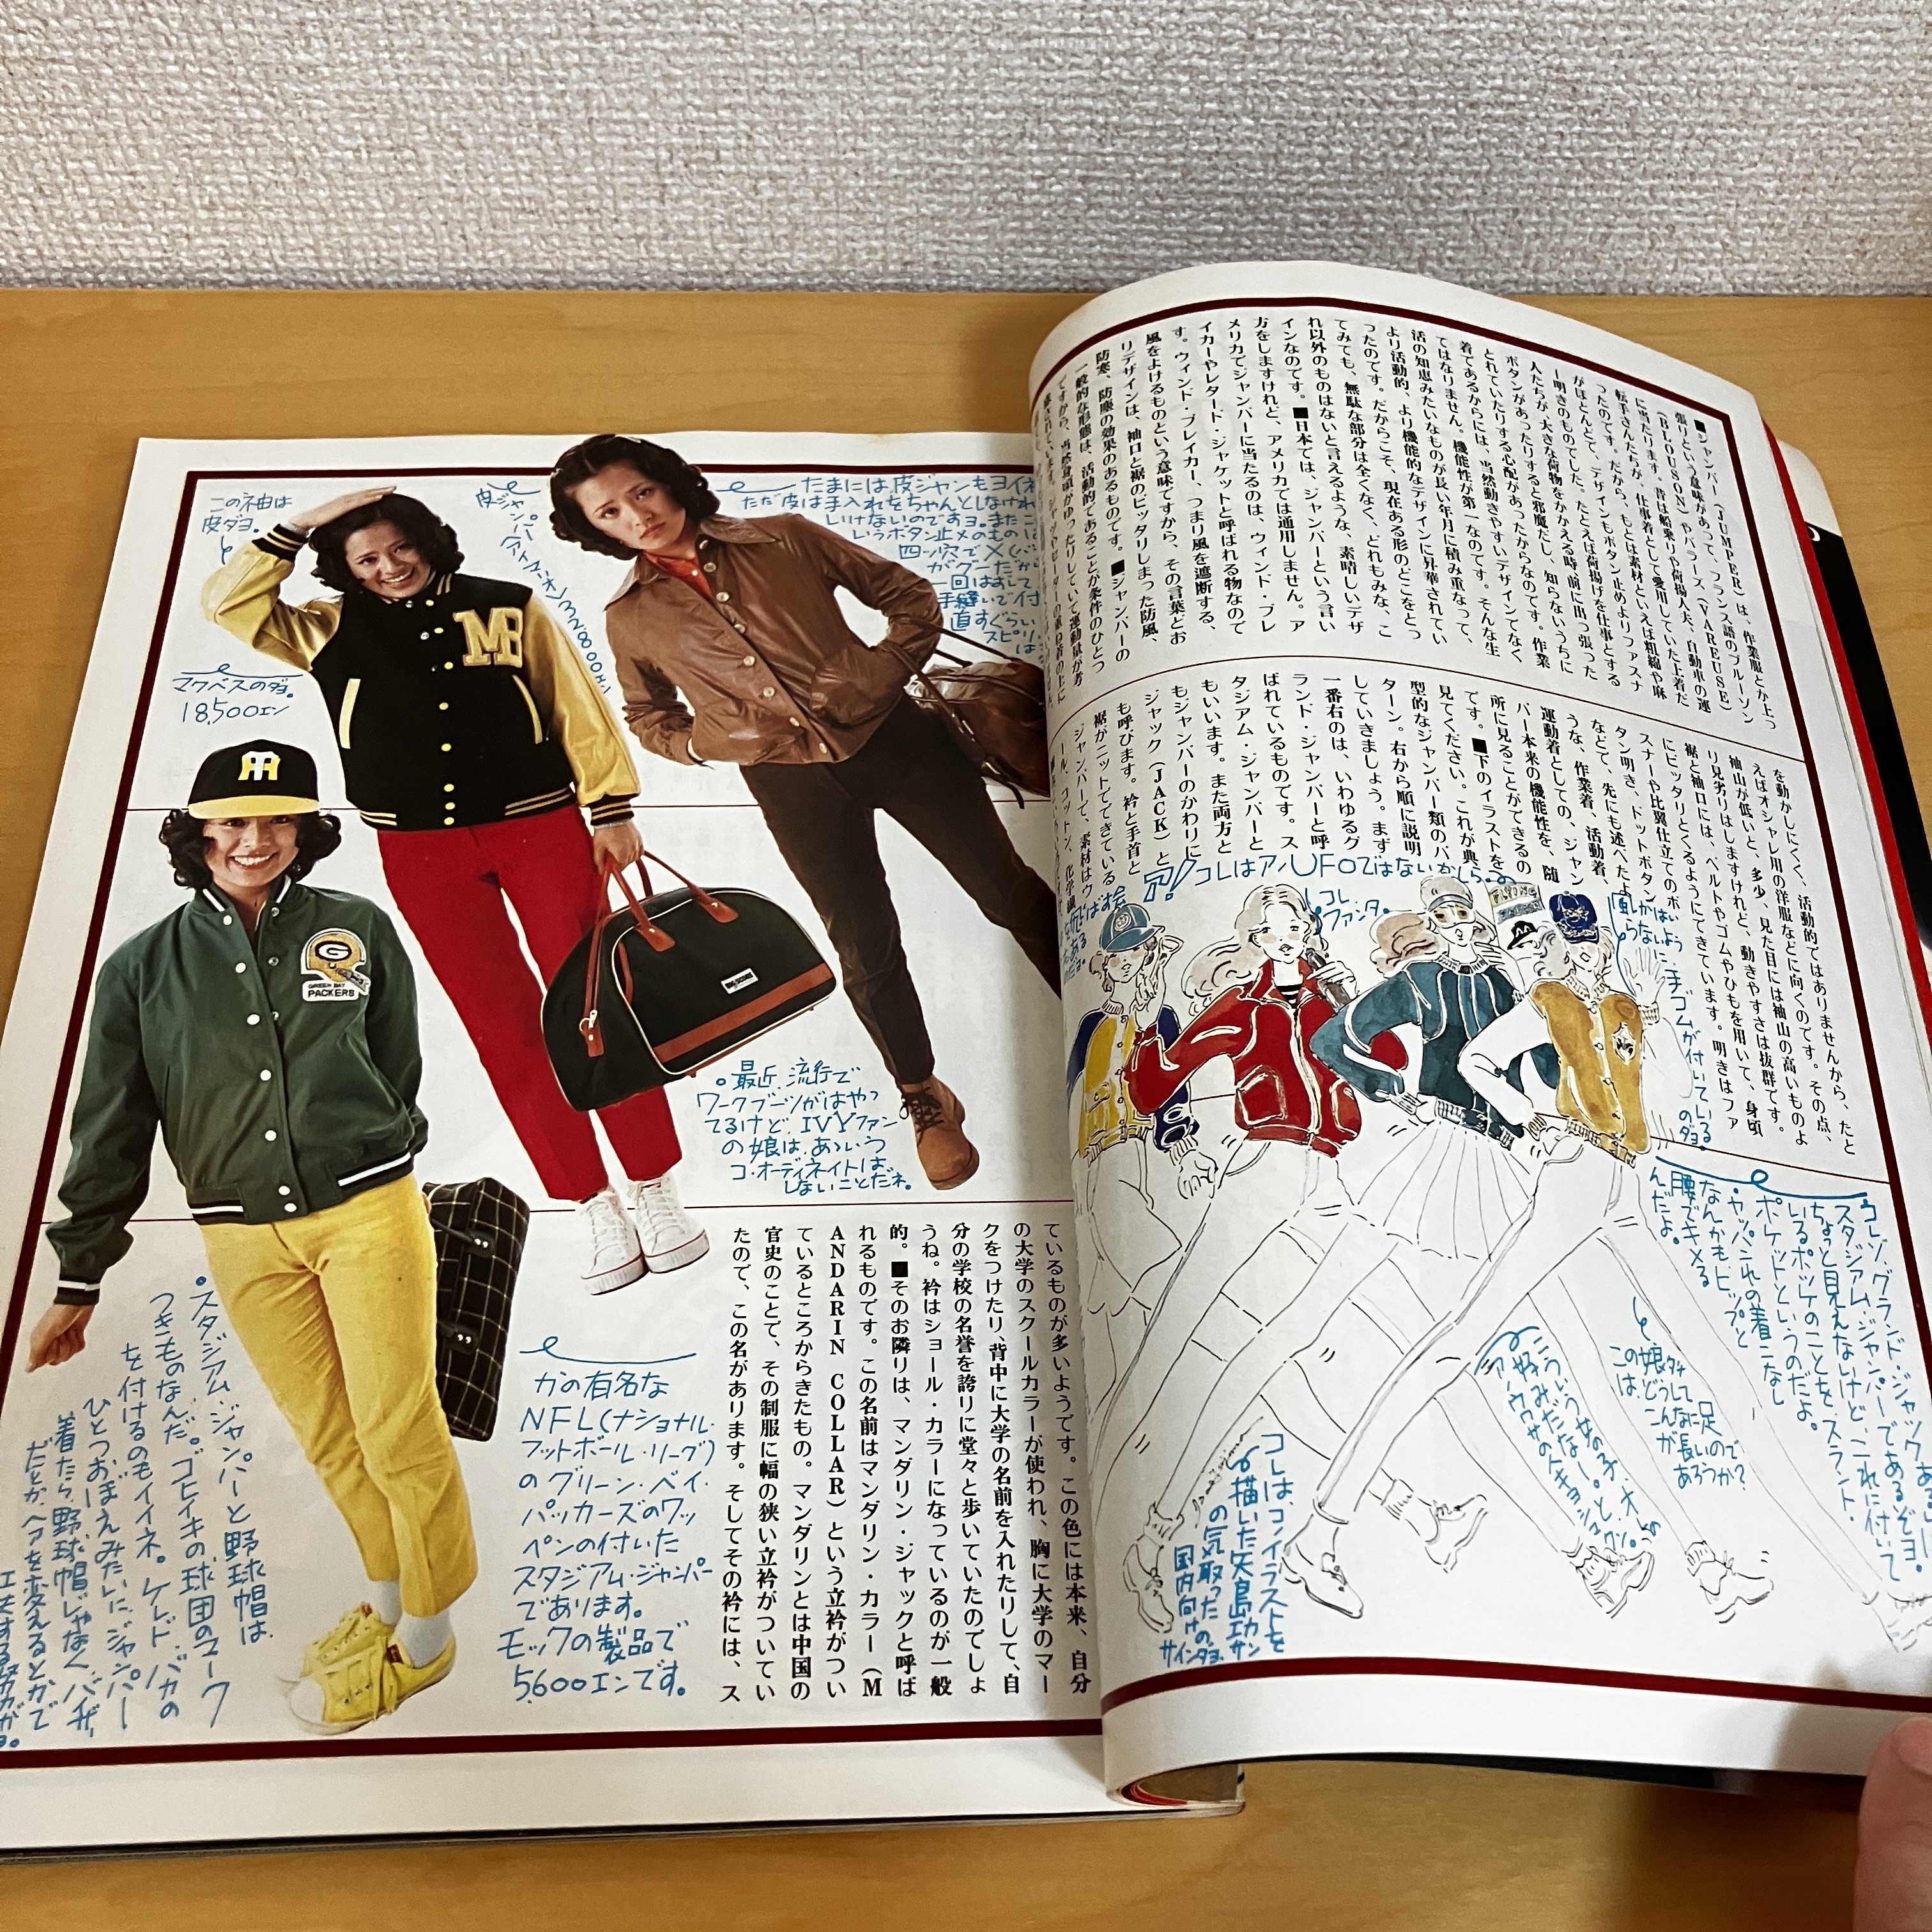 ■ジャンパー(JUMPER)は、作業服とか上っ
張りという意味があって、フランス語のブルーソン
(BLOUSON)やバラーズ(VAREUSE)
に当たります。昔は船乗りや荷揚人夫、自動車の運
転手さんたちが、仕事着として愛用していた上着だ
ったのです。だから、もとは素材といえば粗綿や麻
がほとんどで、デザインもボタン止めよりファスナ
ー明きのものでした。たとえば荷揚げを仕事とする
人たちが、大きな荷物をかかえる時、前に出っ張った
ボタンがあったりすると邪魔だし、知らないうちに
とれていたりする心配があったからなのです。作業
着であるからには、当然動きやすいデザインでなく
てはなりません。機能性が第一なのです。そんな生
活の知恵みたいなものが長い年月に積み重なって、
より活動的、より機能的なデザインに昇華されてい
ったのです。だからこそ、現在ある形のどこをとっ
てみても、無駄な部分は全くなく、どれもみな、こ
れ以外のものはないと言えるような、素晴しいデザ
インなのです。■日本では、ジャンパーという言い
方をしますけれど、アメリカでは通用しません。ア
メリカでジャンパーに当たるのは、ウィンド・ブレ
イカーやレタード・ジャケットと呼ばれる物なので
す。ウィンド・ブレイカー、つまり風を遮断する、
風をよけるものという意味ですから、その言葉どお
りデザインは、袖口と裾のピッタリしまった防風、
防寒、防塵の効果のあるものです。■ジャンパーの
一般的な形態は、活動的であることが条件のひとつ
ですから、当然身頃がゆったりしていて運動量が考
を動かしにくく、活動的ではありませんから、たと
えばオシャレ用の洋服などに向くのです。その点、
袖山が低いと、多少、見た目には袖山の高いものよ
り見劣りはしますけれど、動きやすさは抜群です。
裾と袖口には、ベルトやゴムやひもを用いて、身頃
にピッタリとくるようにできています。明きはファ
スナーや比翼仕立てのボタン、
タン明き、ドットボタン
などで、先にも述べたよ
うな、作業着、活動着、
運動着としての、ジャン
パー本来の機能性を、随
所に見ることができるの
です。■下のイラストを
見てください。これが典
型的なジャンパー類のパ
ターン。右から順に説明
していきましょう。まず
一番右のは、いわゆるグ
ランド・ジャンパーと呼
ばれているものです。ス
タジアム・ジャンパーと
もいいます。また両方と
もジャンパーのかわりに
ジャック(JACK)と
も呼びます。衿と手首と
裾がニットでできている
ジャンパーで、素材はウ
ール、コットン、化学繊
コレはアノUFOではないかしら。
コレ
ファンタ。
手ゴムが付いている
のダヨ。
コレゾ、グランド・ジャック、あるいは
スタジアム・ジャンパーであるぞヨ。
ちょっと見えないけど、これに付いて
いるポッケのことを、スラント・
ポケットというのだよ。
ヤッパこれの着こなし
なんかもヒップと
腰でキメる
んだよ。
この娘タチ
はどうして
こんなに足
が長いので
あろうか?
こういう女の子、オレ
好みだなー。と、
アノウワサの人キョショウクン。
コレは、コノイラストを
描いた矢島功サン
の気取った
国内向けの
サインダヨ。
この袖は
皮ダヨ。
マクベスのダヨ。
18,500エン
皮ジャンパー(アイマーオン)32800エン
たまには皮ジャンもヨイネ
ただ皮は手入れをちゃんとしなけれ
いけないのですヨ。またこ
いうボタン止メのものは
四ツ穴で×(バ
がグーだから
一回はずして
手縫いで付
直すぐらい
スピリ
は
MB
TH
G
GREEN BAY
PACKERS
最近流行で
ワークブーツがはやっ
てるけど、IVYファン
の娘は、あゝいう
コーディネイトは
しないことだネ。
スタジアム・ジャンパーと野球帽は、
つきものなんだ。ゴヒイキの球団のマーク
を付けるのもイイネ。ケレド、バカの
ひとつおぼえみたいに、ジャンパー
着たら、野球帽じゃなく、バイザー
だとか、ヘアを変えるとかで
工夫する努力が。
かの有名な
NFL(ナショナル・
フットボール・リーグ)
のグリーン・ベイ・
パッカーズのワッ
ペンの付いた
スタジアム・ジャンパー
であります。
モックの製品で
5,600エンです。
ているものが多いようです。この色には本来、自分
の大学のスクールカラーが使われ、胸に大学のマー
クをつけたり、背中に大学の名前を入れたりして、自
分の学校の名誉を誇りに堂々と歩いていたのでしょ
うね。衿はショール・カラーになっているのが一般
的。■そのお隣りは、マンダリン・ジャックと呼ば
れるものです。この名前はマンダリン・カラー(M
ANDARIN COLLAR)という立衿がつい
ているところからきたもの。マンダリンとは中国の
官史のことで、その制服に幅の狭い立衿がついてい
たので、この名があります。そしてその衿には、ス